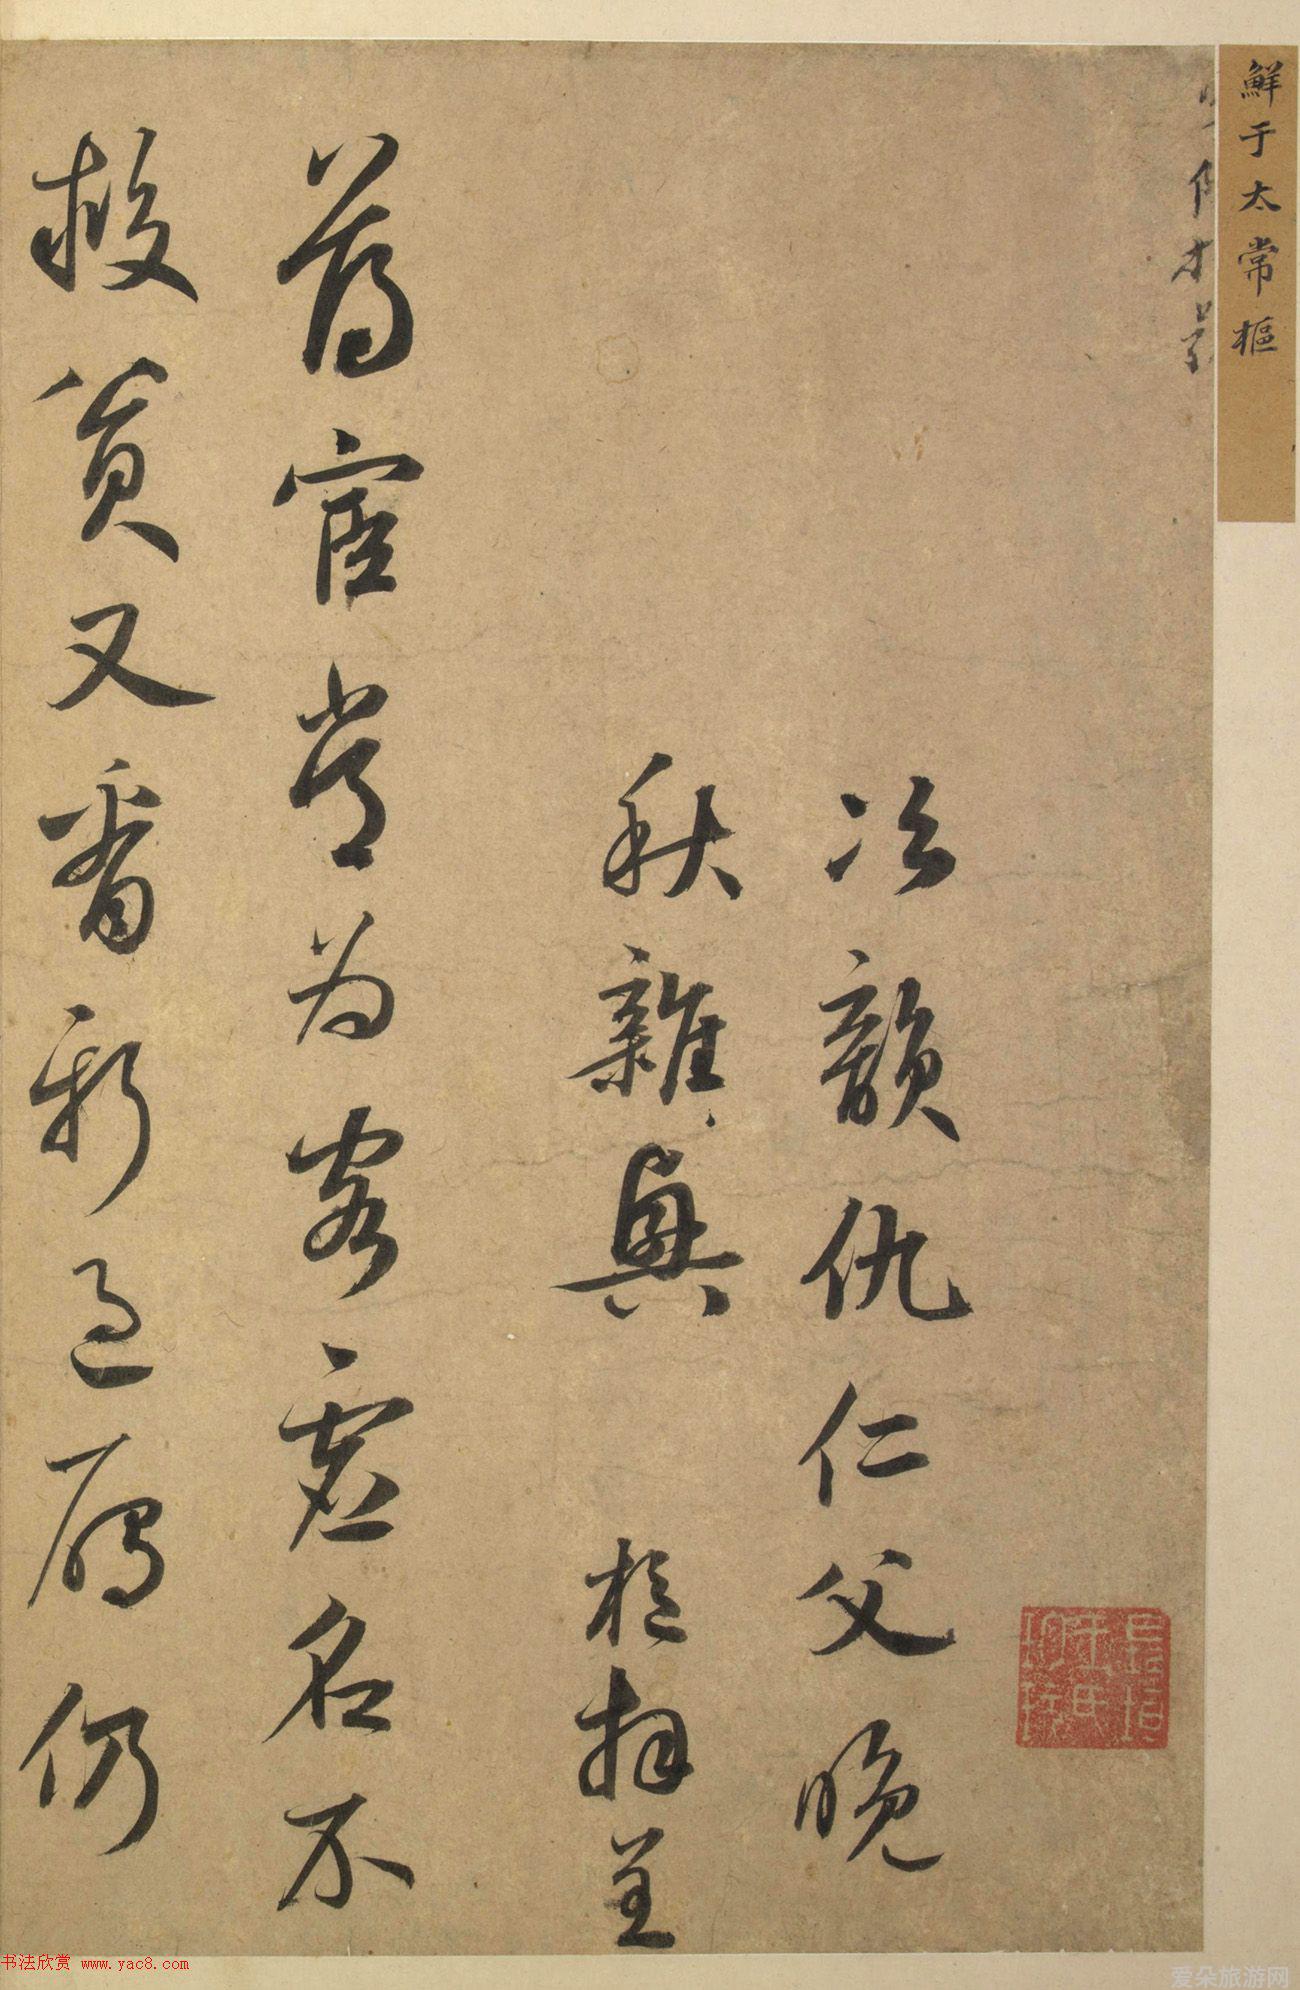 鮮于太常樞
次韻仇仁父晚
秋雜興
樞拜呈
薄宦常為客虛名不
救貧又看新過雁仍
书法欣赏 www.yac8.com
爱朵旅游网